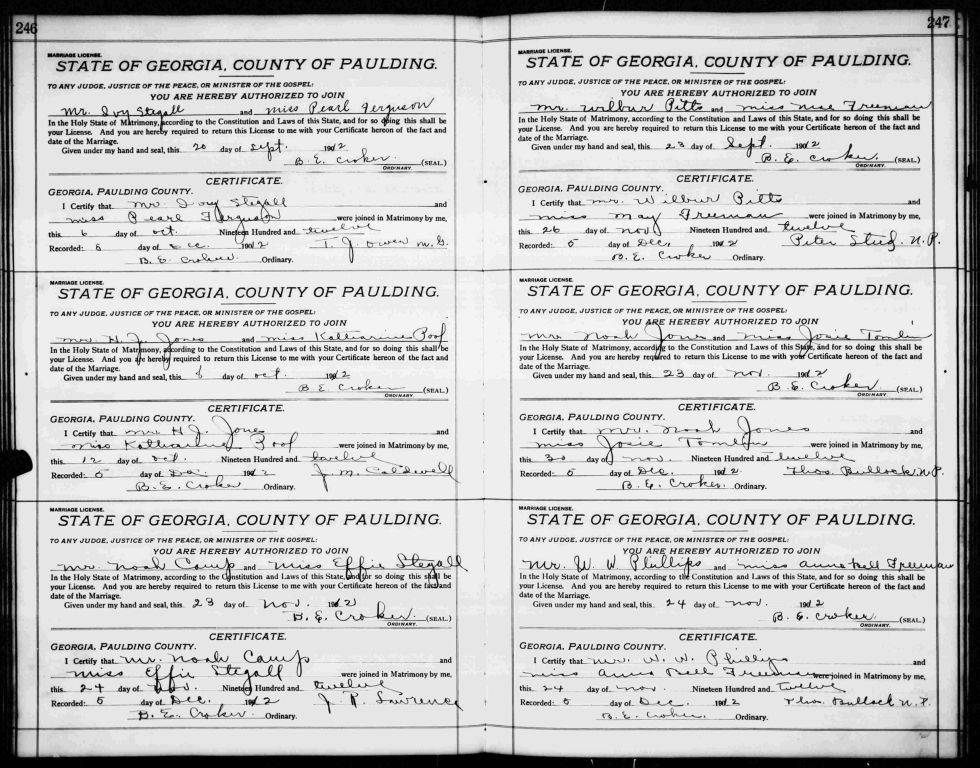 246
MARRIAGE LICENSE.
STATE OF GEORGIA, COUNTY OF PAULDING.
TO ANY JUDGE, JUSTICE OF THE PEACE, OR MINISTER OF THE GOSPEL:
YOU ARE HEREBY AUTHORIZED TO JOIN
Mr. Ivy Stegall and miss Pearl Ferguson
In the Holy State of Matrimony, according to the Constitution and Laws of this State, and for so doing this shall be
your License. And you are hereby required to return this License to me with your Certificate hereon of the fact and
date of the Marriage.
Given under my hand and seal, this 20 day of Sept. 1912
B. E. Croker. (SEAL.)
ORDINARY.
CERTIFICATE.
GEORGIA, PAULDING COUNTY.
I Certify that mr. Ivy Stegall and
miss Pearl Ferguson were joined in Matrimony by me,
this 6 day of oct. Nineteen Hundred and twelve
Recorded: 5 day of Dec. 1912 T. J. Owen M. G.
B. E. Croker. Ordinary.
MARRIAGE LICENSE.
STATE OF GEORGIA, COUNTY OF PAULDING.
TO ANY JUDGE, JUSTICE OF THE PEACE, OR MINISTER OF THE GOSPEL:
YOU ARE HEREBY AUTHORIZED TO JOIN
mr. H. J. Jones and miss Katharine Poof
In the Holy State of Matrimony, according to the Constitution and Laws of this State, and for so doing this shall be
your License. And you are hereby required to return this License to me with your Certificate hereon of the fact and
date of the Marriage.
Given under my hand and seal, this day of oct. 1912
B E Croker (SEAL.)
ORDINARY.
CERTIFICATE.
GEORGIA, PAULDING COUNTY.
I Certify that mr. H J. Jones and
miss Katharine Poof were joined in Matrimony by me,
this 12 day of oct. Nineteen Hundred and twelve
Recorded: 5 day of Dec. 1912 J. M. Caldwell
B. E. Croker Ordinary.
MARRIAGE LICENSE.
STATE OF GEORGIA, COUNTY OF PAULDING.
TO ANY JUDGE, JUSTICE OF THE PEACE, OR MINISTER OF THE GOSPEL:
YOU ARE HEREBY AUTHORIZED TO JOIN
mr. Noah Camp and miss Effie Stegall
In the Holy State of Matrimony, according to the Constitution and Laws of this State, and for so doing this shall be
your License. And you are hereby required to return this License to me with your Certificate hereon of the fact and
date of the Marriage.
Given under my hand and seal, this 23 day of Nov. 1912
B. E. Croker. (SEAL.)
ORDINARY.
CERTIFICATE.
GEORGIA, PAULDING COUNTY.
I Certify that mr. Noah Camp and
miss Effie Stegall were joined in Matrimony by me,
this 24 day of Nov. Nineteen Hundred and twelve
Recorded: 5 day of Dec. 1912 J. R. Lawrence
B. E. Croker. Ordinary.
247
MARRIAGE LICENSE.
STATE OF GEORGIA, COUNTY OF PAULDING.
TO ANY JUDGE, JUSTICE OF THE PEACE, OR MINISTER OF THE GOSPEL:
YOU ARE HEREBY AUTHORIZED TO JOIN
mr. Wilbur Pitts and miss mae Freeman
In the Holy State of Matrimony, according to the Constitution and Laws of this State, and for so doing this shall be
your License. And you are hereby required to return this License to me with your Certificate hereon of the fact and
date of the Marriage.
Given under my hand and seal, this 23 day of Sept. 1912
B. E. Croker. (SEAL.)
ORDINARY.
CERTIFICATE.
GEORGIA, PAULDING COUNTY.
I Certify that mr. Wilbur Pitts and
miss May Freeman were joined in Matrimony by me,
this 26 day of nov Nineteen Hundred and twelve
Recorded: 5 day of Dec. 1912 N. P.
B. E. Croker Ordinary.
MARRIAGE LICENSE.
STATE OF GEORGIA, COUNTY OF PAULDING.
TO ANY JUDGE, JUSTICE OF THE PEACE, OR MINISTER OF THE GOSPEL:
YOU ARE HEREBY AUTHORIZED TO JOIN
mr. Noah Jones and miss Josie Tomlin
In the Holy State of Matrimony, according to the Constitution and Laws of this State, and for so doing this shall be
your License. And you are hereby required to return this License to me with your Certificate hereon of the fact and
date of the Marriage.
Given under my hand and seal, this 23 day of nov. 1912
B. E. Croker (SEAL.)
ORDINARY.
CERTIFICATE.
GEORGIA, PAULDING COUNTY.
I Certify that mr. Noah Jones and
miss Josie Tomlin were joined in Matrimony by me,
this 30 day of nov. Nineteen Hundred and twelve
Recorded: 5 day of Dec. 1912 Thos. Bullock N. P.
B. E. Croker. Ordinary.
MARRIAGE LICENSE.
STATE OF GEORGIA, COUNTY OF PAULDING.
TO ANY JUDGE, JUSTICE OF THE PEACE, OR MINISTER OF THE GOSPEL:
YOU ARE HEREBY AUTHORIZED TO JOIN
Mr. W. W Phillips and miss anna bell Freeman
In the Holy State of Matrimony, according to the Constitution and Laws of this State, and for so doing this shall be
your License. And you are hereby required to return this License to me with your Certificate hereon of the fact and
date of the Marriage.
Given under my hand and seal, this 24 day of nov. 1912
B. E. Croker. (SEAL.)
ORDINARY.
CERTIFICATE.
GEORGIA, PAULDING COUNTY.
I Certify that mr. W. W. Phillips and
miss Anna Bell Freeman were joined in Matrimony by me,
this 24 day of nov. Nineteen Hundred and twelve
Recorded: 5 day of Dec. 1912 Thos. Bullock N. P.
B. E. Croker. Ordinary.